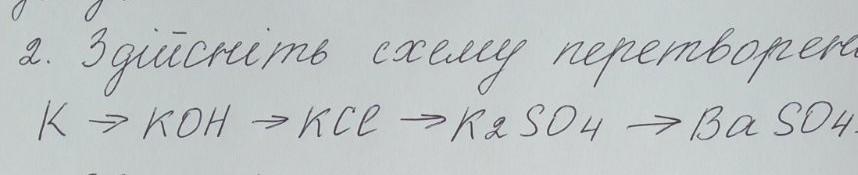 2. Здійсніть схему перетворен
K → KOH → KCl → K2SO4 → BaSO4.